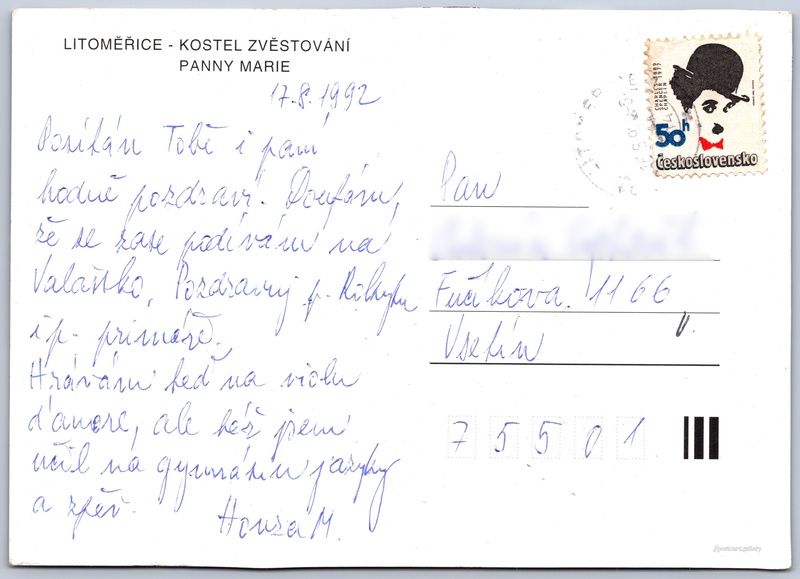 LITOMĚŘICE - KOSTEL ZVĚSTOVÁNÍ
PANNY MARIE
17.8.1992
Posílám Tobě i paní
hodně pozdravů. Doufám,
že se zase podívám na
Valašsko. Pozdravuj p.
i p. primáře.
Hrávám teď na violu
d'amore, ale též jsem
učil na gymnáziu jazyky
a zpěv.
Honza M.
CHARLES SPENCER CHAPLIN
50h
Československo
Pan
Fučíkova 1166
Vsetín
75501